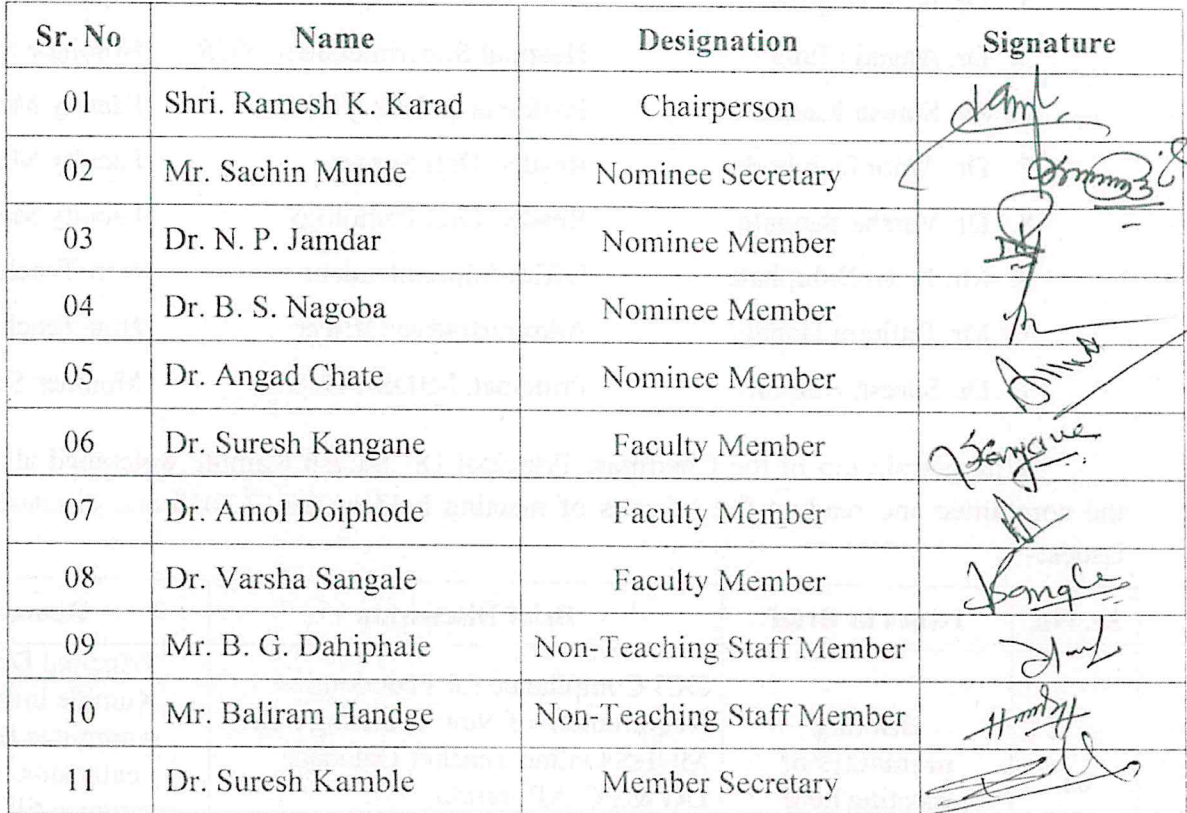 Sr. No Name Designation Signature
01 Shri. Ramesh K. Karad Chairperson
02 Mr. Sachin Munde Nominee Secretary
03 Dr. N. P. Jamdar Nominee Member
04 Dr. B. S. Nagoba Nominee Member
05 Dr. Angad Chate Nominee Member
06 Dr. Suresh Kangane Faculty Member Kangane
07 Dr. Amol Doiphode Faculty Member
08 Dr. Varsha Sangale Faculty Member Sangale
09 Mr. B. G. Dahiphale Non-Teaching Staff Member
10 Mr. Baliram Handge Non-Teaching Staff Member
11 Dr. Suresh Kamble Member Secretary